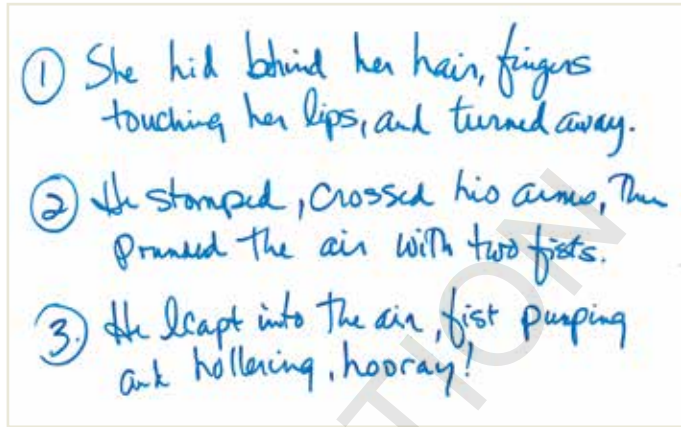 ① She hid behind her hair, fingers
touching her lips, and turned away.
② He stomped, crossed his arms, then
pounded the air with two fists.
③. He leapt into the air, fist pumping
and hollering, hooray!
TION